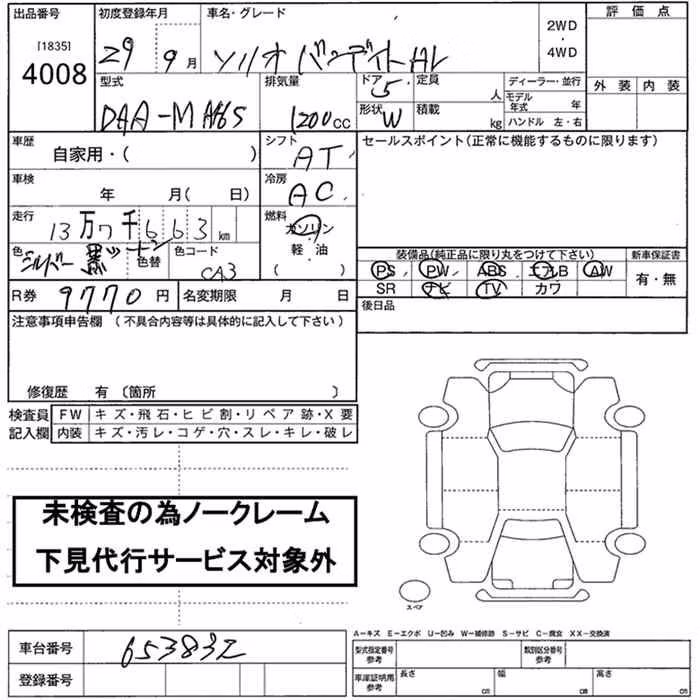 出品番号
[1835]
4008
初度登録年月
29 9月
車名・グレード
ソリオ バンディット
2WD
・
4WD
評価点
外装 内装
型式
DAA-MA46S
排気量
1200cc
ドア 5
定員 人
形状 W
積載 kg
ディーラー・並行
モデル年式 年
ハンドル 左・右
車歴
自家用・( )
シフト
AT
セールスポイント(正常に機能するものに限ります)
車検
年 月( 日)
冷房
AC
走行
13万7千663km
燃料
ガソリン
・
軽・油
( )
色
シルバー 黒ツートン
色替
色コード
CA3
装備品(純正品に限り丸をつけて下さい)
PS PW ABS エアB AW
SR ナビ TV カワ
新車保証書
有・無
R券 9770円
名変期限 月 日
後日品
注意事項申告欄 (不具合内容等は具体的に記入して下さい)
修復歴 有 〔箇所 〕
検査員
記入欄
FW キズ・飛石・ヒビ割・リペア跡・X要
内装 キズ・汚レ・コゲ・穴・スレ・キレ・破レ
未検査の為ノークレーム
下見代行サービス対象外
スペア
A−キズ E−エクボ U−凹み W−補修跡 S−サビ C−腐食 XX−交換済
車台番号 653832
登録番号
型式指定番号
参考
類別区分番号
参考
車庫証明用
参考
長さ cm
幅 cm
高さ cm